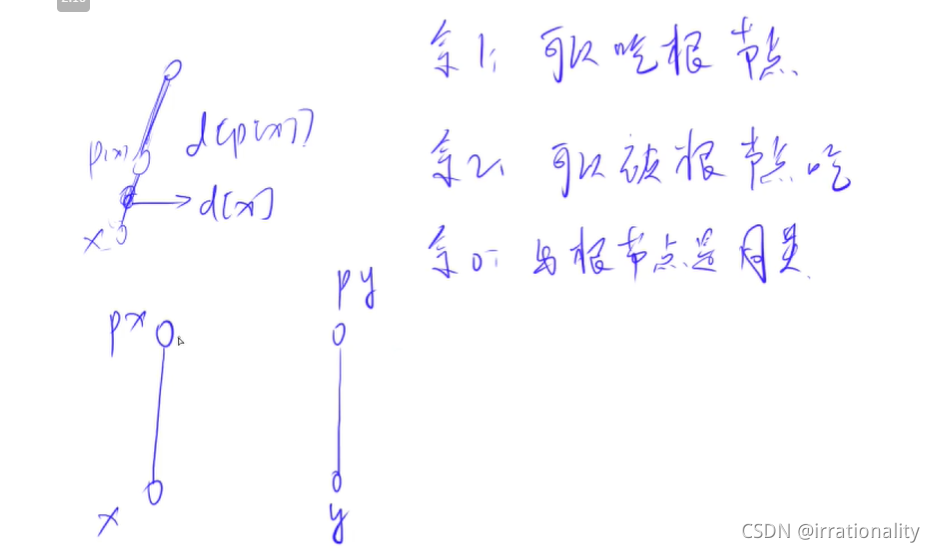 余1: 可以吃根节点
d(p(x))
p(x)
余2: 可以被根节点吃
d(x)
x
余0: 与根节点是同类
py
px
x
y
CSDN @irrationality